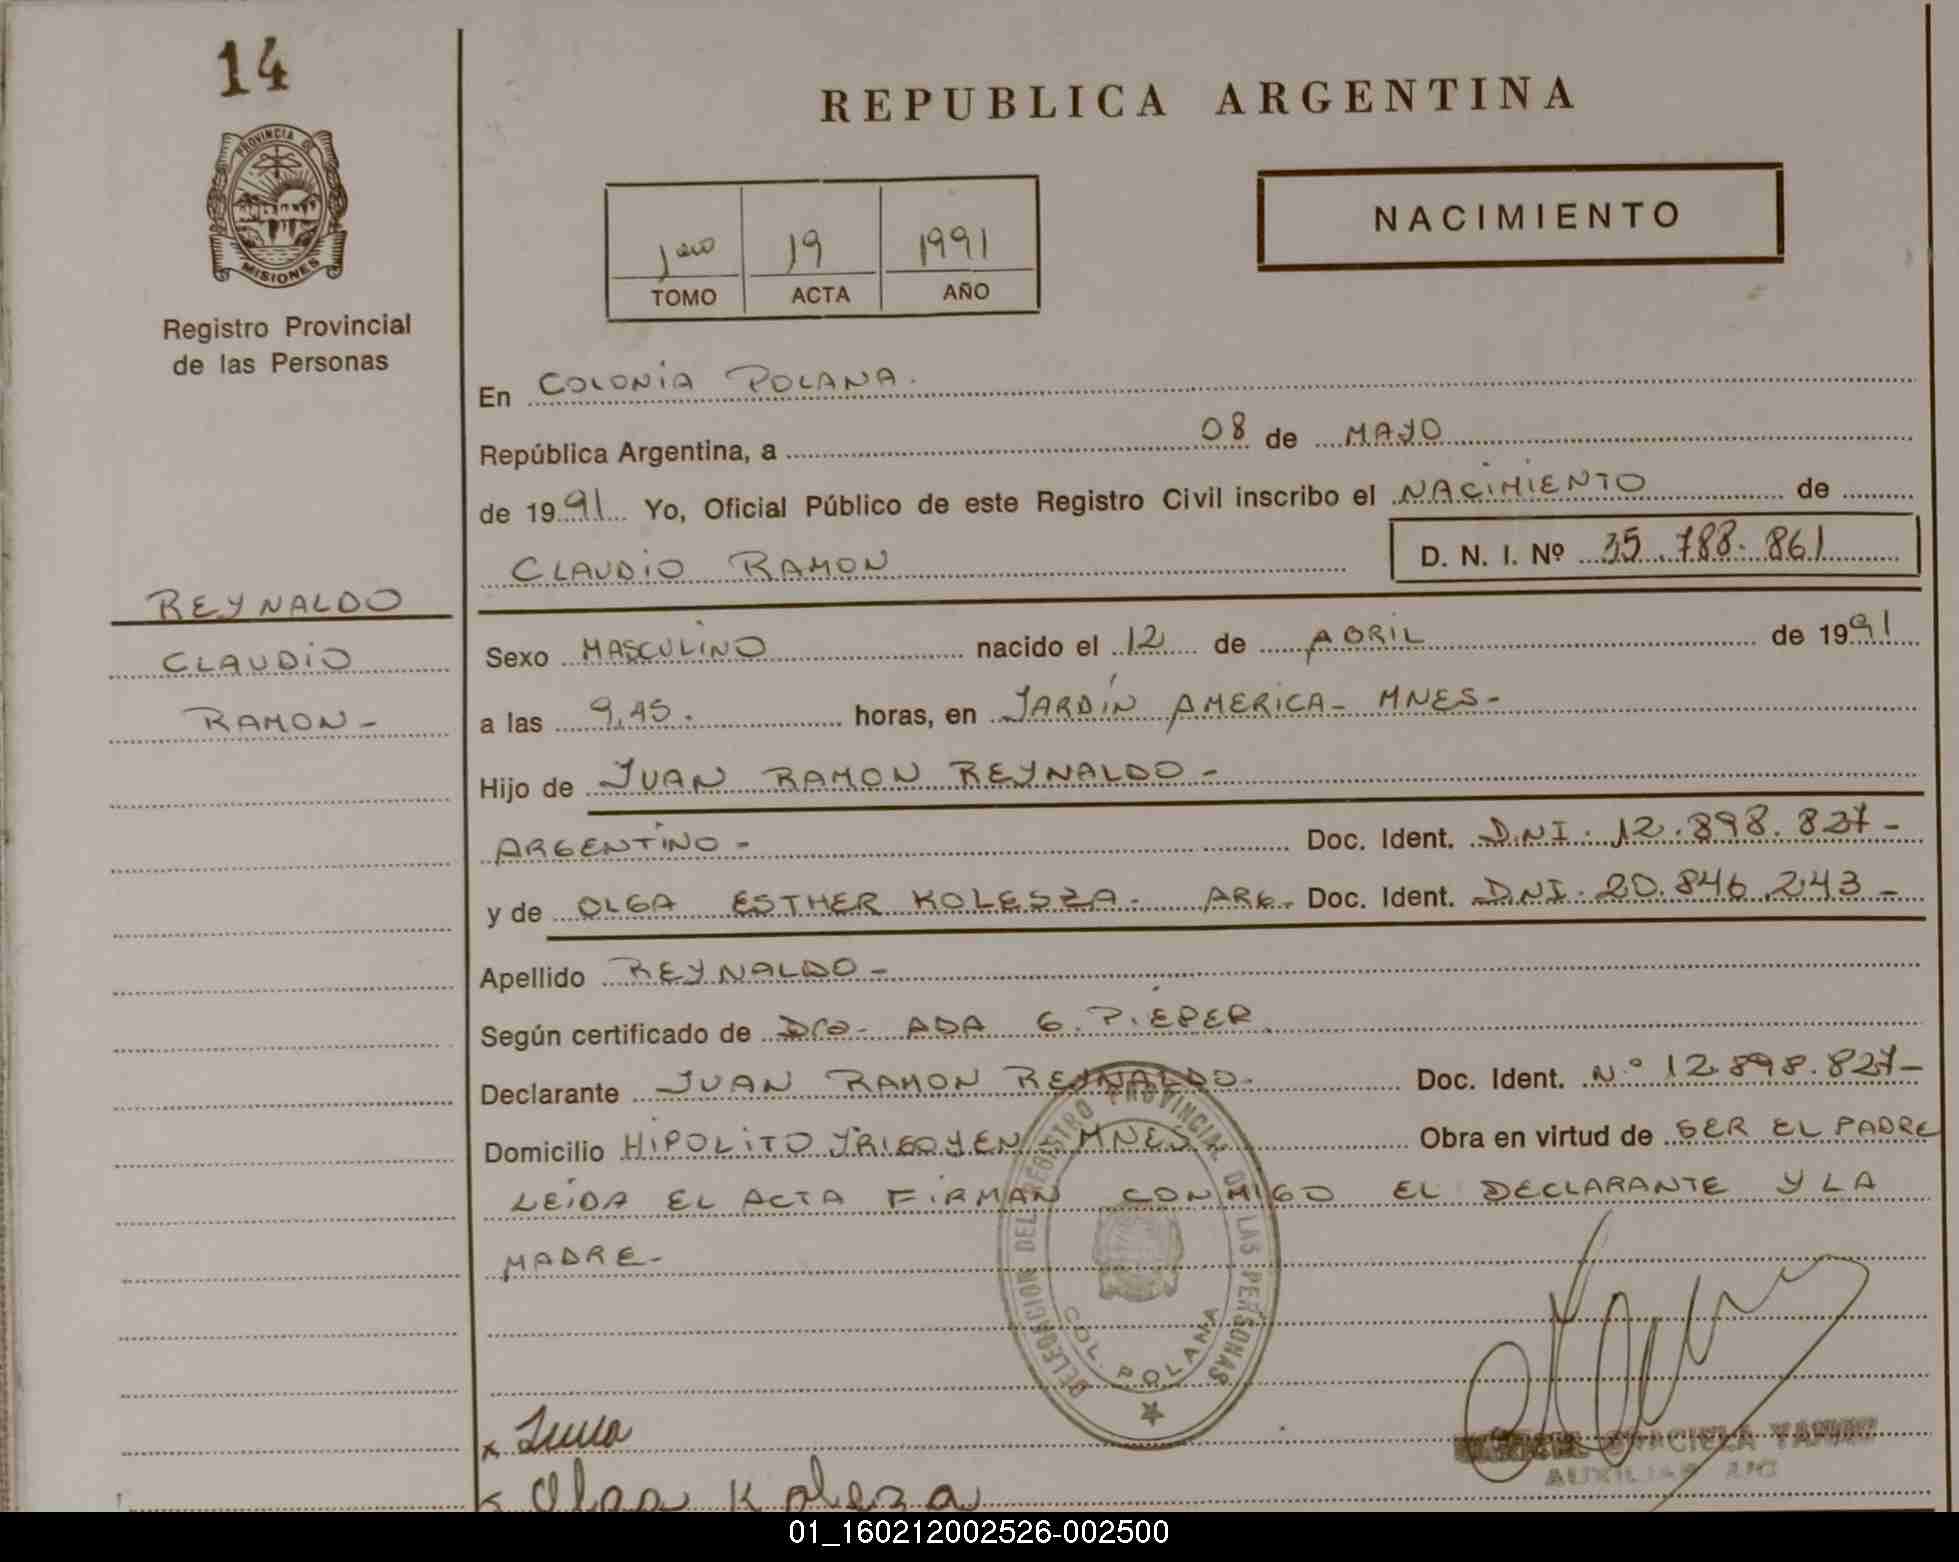 14
PROVINCIA DE
MISIONES
Registro Provincial
de las Personas
REPUBLICA ARGENTINA
NACIMIENTO
1ero 19 1991
TOMO ACTA AÑO
En COLONIA POLANA.
República Argentina, a 08 de MAYO
de 1991 Yo, Oficial Público de este Registro Civil inscribo el NACIMIENTO de
CLAUDIO RAMON D. N. I. Nº 35.788.861
REYNALDO
CLAUDIO
RAMON-
Sexo MASCULINO nacido el 12 de ABRIL de 1991
a las 9,45. horas, en JARDIN AMERICA- MNES-
Hijo de JUAN RAMON REYNALDO-
ARGENTINO- Doc. Ident. D.N.I. 12.898.827-
y de OLGA ESTHER KOLESZA. ARG. Doc. Ident. DNI. 20.846.243-
Apellido REYNALDO-
Según certificado de Dra- ADA G. PIEPER
Declarante JUAN RAMON REYNALDO- Doc. Ident. N.º 12.898.827-
Domicilio HIPOLITO YRIGOYEN MNES Obra en virtud de SER EL PADRE
LEIDA EL ACTA FIRMAN CONMIGO EL DECLARANTE Y LA
MADRE-
DELEGACION DEL REGISTRO PROVINCIAL DE LAS PERSONAS
COL. POLANA
x
GRACIELA
AUXILIAR
x Olga Koleza
01_160212002526-002500